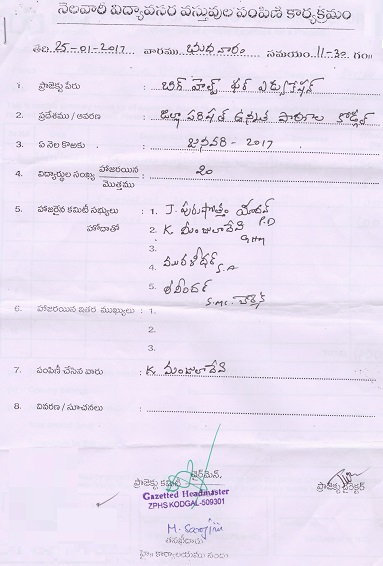 నెలవారీ విద్యావసర వస్తువుల పంపిణి కార్యక్రమం
తేది. 25-01-2017 వారము. బుధవారం సమయం. 11-30 గం॥
1. ప్రాజెక్టు పేరు : బిగ్ హెల్ప్ ఫర్ ఎడ్యుకేషన్
2. ప్రదేశము / ఆవరణ : జిల్లా పరిషత్ ఉన్నత పాఠశాల కోడ్గల్
3. ఏ నెల కొఱకు : జనవరి - 2017
4. విద్యార్థుల సంఖ్య హాజరయిన / మొత్తము : 20
5. హాజరైన కమిటీ సభ్యులు : 1. J. పురుషోత్తం యాదవ్ P.D
హోదాతో 2. K మంజులాదేవి GHM
3.
4. మురళీధర్ S.A
5. రవీందర్ S.M.C చైర్మన్
6. హాజరయిన ఇతర ముఖ్యులు : 1.
2.
3.
7. పంపిణీ చేసిన వారు : K మంజులాదేవి
8. వివరణ / సూచనలు :
ప్రాజెక్టు కమిటీ ఛైర్మెన్,
ప్రాజెక్టు డైరెక్టర్
Gazetted Headmaster
ZPHS KODGAL-509301
M. Sarojini